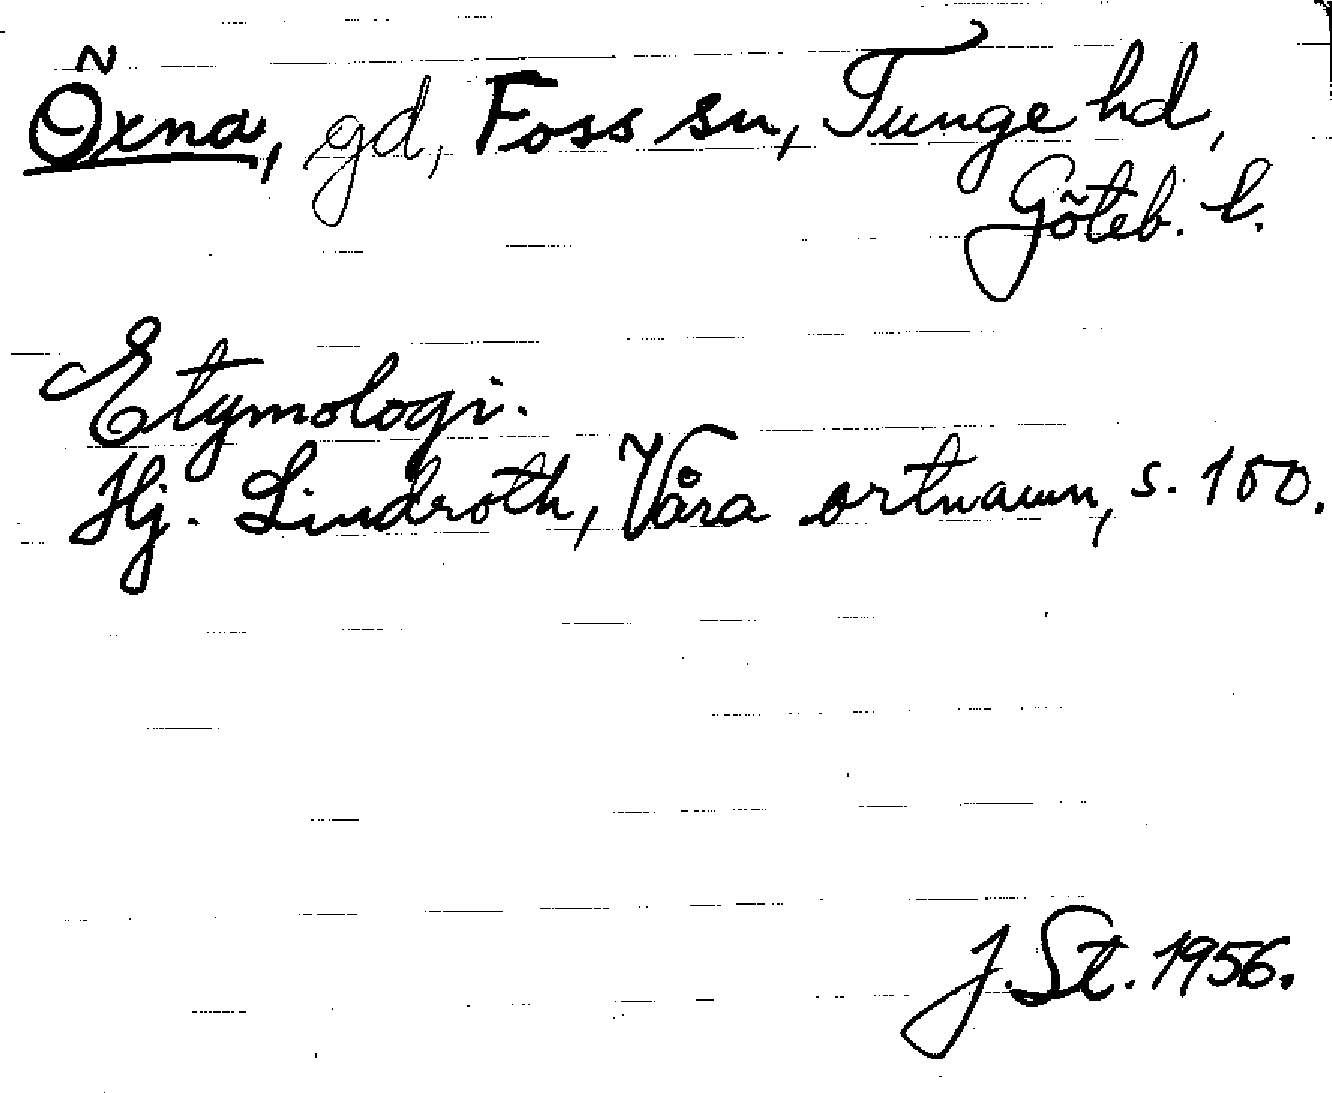 Õxna, gd, Foss sn, Tunge hd,
Gõteb. l.
Etymologi.
Hj. Lindroth, Våra ortnamn, s. 100.
J. St. 1956.